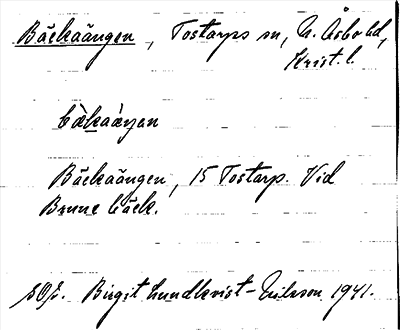 Bäckaängen, Tostarps sn, N. Åsbo hd,
Krist. l.
bäkaäŋen
Bäckaängen, 15 Tostarp. Vid
Brune bäck.
SOf. Birgit Lundkvist-Nilsson 1941.